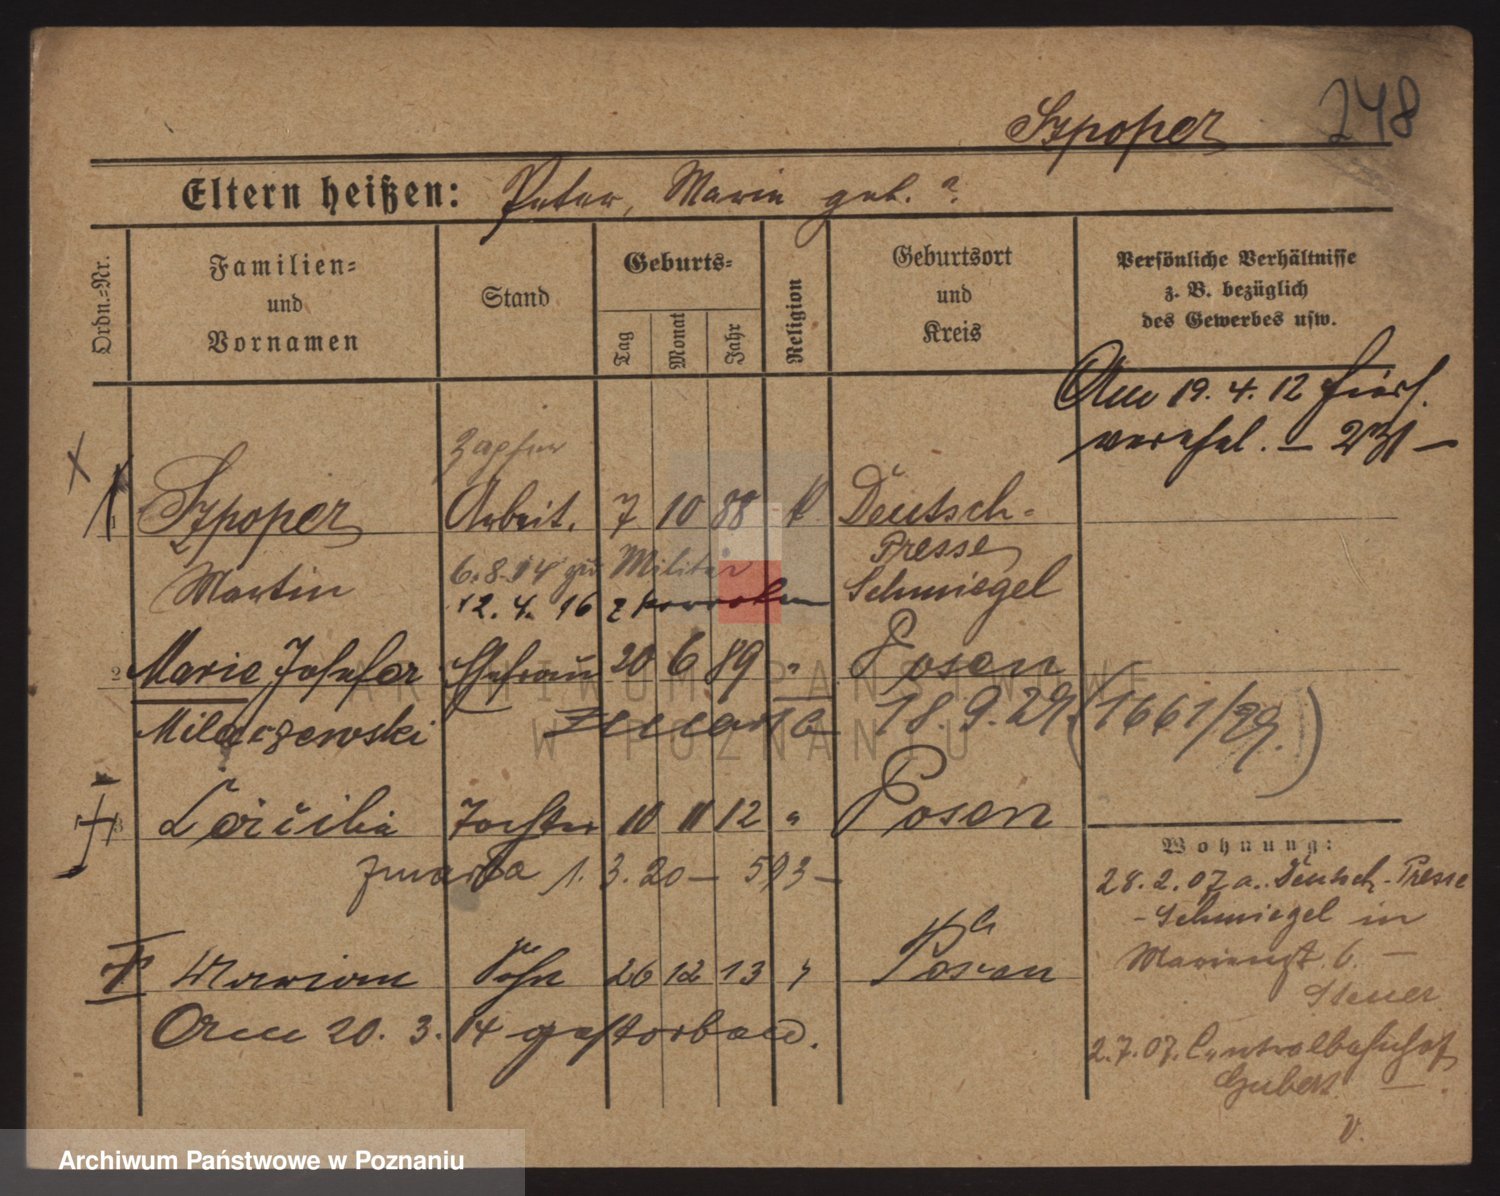 Szpoper 248
Eltern heißen: Peter, Marie geb. ?
Ordn.-Nr.
Familien-
und
Vornamen
Stand
Geburts-
Tag
Monat
Jahr
Religion
Geburtsort
und
Kreis
Persönliche Verhältnisse
z. B. bezüglich
des Gewerbes usw.
Am 19. 4. 12 hiers.
verehel. – 231 –
Zapfer
1 Szpoper Arbeit. 7 10 88 k. Deutsch-
Presse
Martin 6. 8. 14 zu Militär Schmiegel
12. 4. 16 z
2 Marie Josefa Ehefrau 20 6 89 " Posen
Milaczewski Zmarła 18. 9. 29. (1661/29.)
3 Cäcilia Tochter 10 11 12 " Posen
zmarła 1. 3. 20 – 593 –
Marian Sohn 26 12 13 " Posen
Am 20. 3. 14 gestorben.
Wohnung:
28. 2. 07 a. Deutsch-Presse
-Schmiegel in
Marienst. 6. –
2. 7. 07. Centralbahnhof
v.
ARCHIWUM PAŃSTWOWE
W POZNANIU
Archiwum Państwowe w Poznaniu